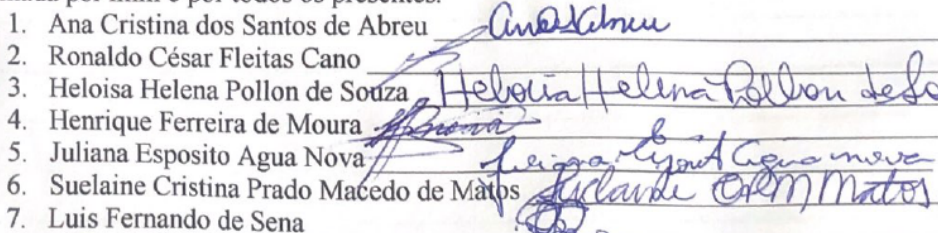 1. Ana Cristina dos Santos de Abreu Ana Abreu
2. Ronaldo César Fleitas Cano
3. Heloisa Helena Pollon de Souza Heloisa Helena Pollon de So
4. Henrique Ferreira de Moura
5. Juliana Esposito Agua Nova Juliana Esposit Agua nova
6. Suelaine Cristina Prado Macedo de Matos Suelaine CPM Matos
7. Luis Fernando de Sena